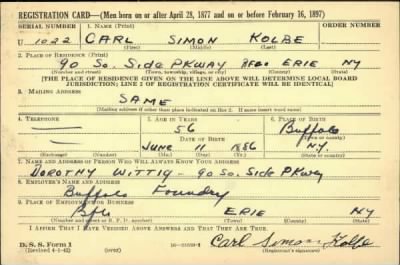 REGISTRATION CARD—(Men born on or after April 28, 1877 and on or before February 16, 1897)
SERIAL NUMBER 1. NAME (Print) ORDER NUMBER
U 1022 CARL SIMON KOLBE
(First) (Middle) (Last)
2. PLACE OF RESIDENCE (Print)
90 So. Side PKWAY BFLO ERIE NY
(Number and street) (Town, township, village, or city) (County) (State)
[THE PLACE OF RESIDENCE GIVEN ON THE LINE ABOVE WILL DETERMINE LOCAL BOARD
JURISDICTION; LINE 2 OF REGISTRATION CERTIFICATE WILL BE IDENTICAL]
3. MAILING ADDRESS
SAME
[Mailing address if other than place indicated on line 2. If same insert word same]
4. TELEPHONE 5. AGE IN YEARS 6. PLACE OF BIRTH
56 Buffalo
DATE OF BIRTH (Town or county)
JUNE 11 1886 NY.
(Exchange) (Number) (Mo.) (Day) (Yr.) (State or country)
7. NAME AND ADDRESS OF PERSON WHO WILL ALWAYS KNOW YOUR ADDRESS
DOROTHY WITTIG - 90 So. Side PKway
8. EMPLOYER'S NAME AND ADDRESS
Buffalo Foundry
9. PLACE OF EMPLOYMENT OR BUSINESS
Bflo ERIE NY
(Number and street or R. F. D. number) (Town) (County) (State)
I AFFIRM THAT I HAVE VERIFIED ABOVE ANSWERS AND THAT THEY ARE TRUE.
D. S. S. Form 1
(Revised 4-1-42) (over) Carl Simon Kolbe
(Registrant's signature)